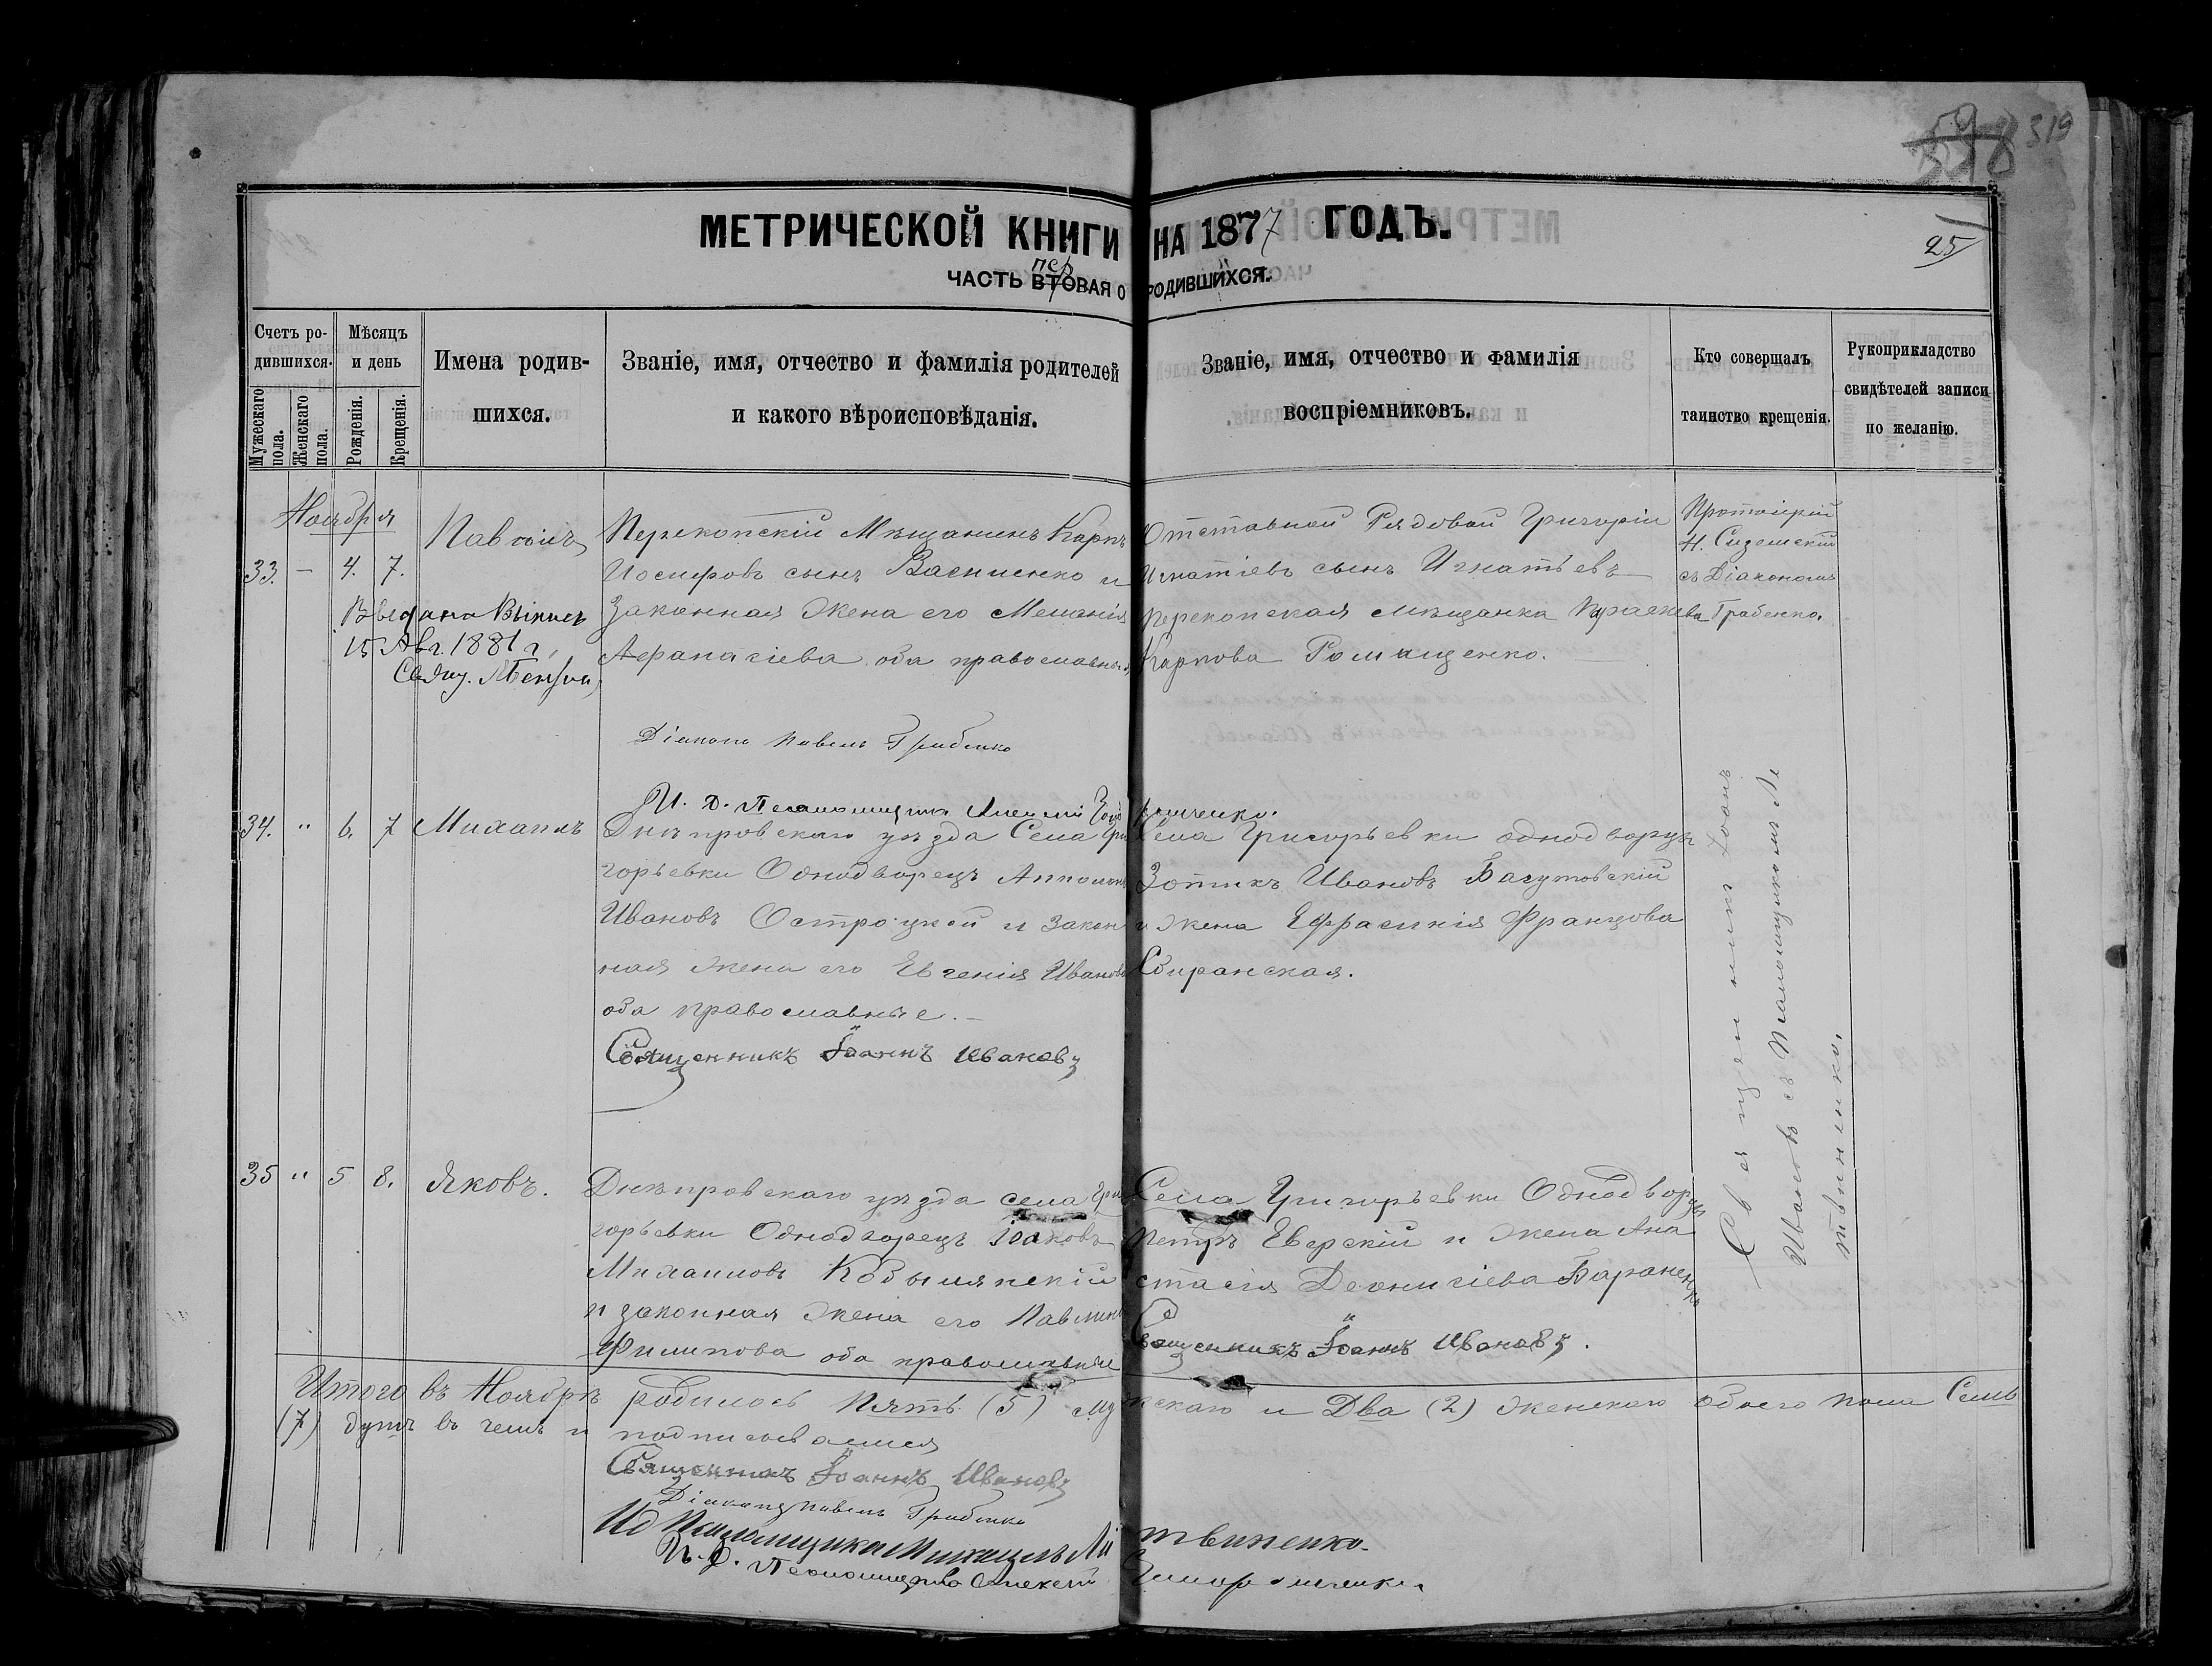 598 319
МЕТРИЧЕСКОЙ КНИГИ НА 1877 ГОДЪ.
25
пер
ЧАСТЬ ВТОРАЯ О РОДИВШИХСЯ.
Счетъ ро-
дившихся.
Мужескаго пола.
Женскаго пола.
Мѣсяцъ
и день
Рожденія.
Крещенія.
Имена родив-
шихся.
Званіе, имя, отчество и фамилія родителей
и какого вѣроисповѣданія.
Званіе, имя, отчество и фамилія
воспріемниковъ.
Кто совершалъ
таинство крещенія.
Рукоприкладство
свидѣтелей записи
по желанію.
Ноября
33. — 4. 7.
Павелъ
Выдана Выпись
15 Авг. 1881 г.
Перекопскій Мѣщанинъ Карпъ
Иосифовъ сынъ Василенко и
Законная Жена его Меланія
Афанасіева оба православные
Отставной Рядовой Григорій
Игнатіевъ сынъ Игнатьевъ
Перекопская мѣщанка Параскева
Карпова Ромащенко.
Протоіерей
Н.
съ Діакономъ
Грабенко.
Діаконъ Павелъ Грабенко
И. д. Псаломщика Алексій
34. " 6. 7 Михаилъ
Днѣпровскаго уѣзда Села Гри
горьевки Однодворецъ Апполонъ
Ивановъ Остроцкой и закон
ная жена его Евгенія Иванова
оба православные. —
Священникъ Іоаннъ Ивановъ
Села Григорьевки однодворцы
Зотикъ Ивановъ Багутовскій
и жена Ефрасинія Францова
Сбиранская.
Священникъ Іоанъ
Ивановъ съ Псаломщикомъ Ли
твиненко.
35 " 5 8. Яковъ.
Днѣпровскаго уѣзда села Гри
горьевки Однодворецъ Іаковъ
Михаиловъ Кобылянскій
и законная жена его Павлина
Филипова оба православные
Села Григорьевки Однодворцы
Петръ Еверскій и жена Ана
стасія Деонисіева Бараненк
Священникъ Іоаннъ Ивановъ.
Итого въ Ноябрѣ родилось Пять (5) мужскаго и Два (2) женскаго обоего пола Семь
(7) душъ въ чемъ и подписываемся
Священникъ Іоаннъ Ивановъ
Діаконъ Павелъ Грабенко
И д Псаломщика Михаилъ Литвиненко.
И. д. Псаломщика Алексей